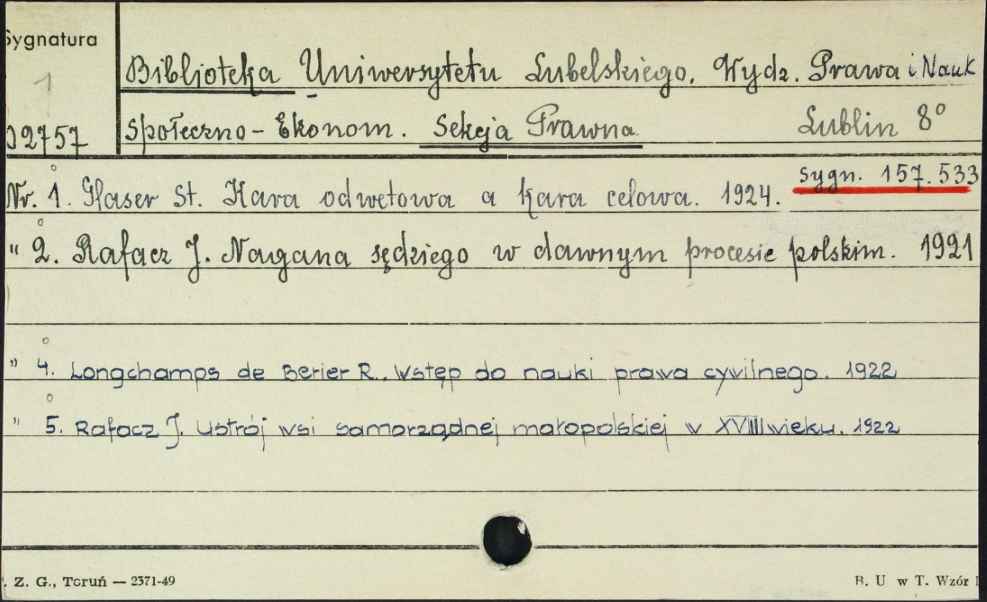 Sygnatura
1
Biblioteka Uniwersytetu Lubelskiego. Wydz. Prawa i Nauk
02757 społeczno-Ekonom. Sekcja Prawna. Lublin 8°
sygn. 157.533
Nr. 1. Glaser St. Kara odwetowa a kara celowa. 1924.
" 2. Rafacz J. Nagana sędziego w dawnym procesie polskim. 1921
" 4. Longchamps de Berier R.. Wstęp do nauki prawa cywilnego. 1922
" 5. Rafacz J. Ustrój wsi samorządnej małopolskiej w XVIII wieku. 1922
. Z. G., Toruń — 2371-49 B. U w T. Wzór 1